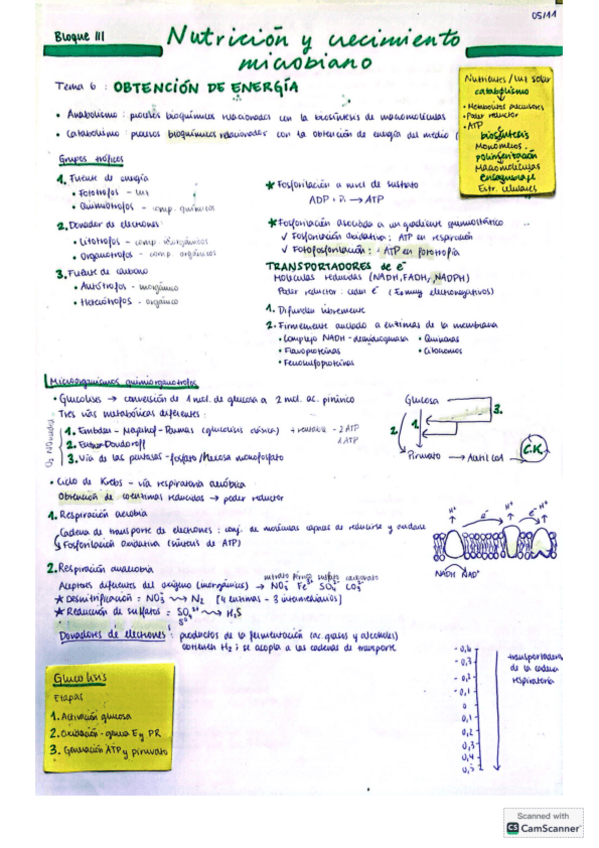 05/11
Bloque III
Nutrición y crecimiento
microbiano
Tema 6 : OBTENCIÓN DE ENERGÍA
• Anabolismo : procesos bioquímicos relacionados con la biosíntesis de macromoléculas
• Catabolismo : procesos bioquímicos relacionados con la obtención de energía del medio (
Nutrientes / luz solar
catabolismo
• Metabolitos precursores
• Poder reductor
• ATP
biosíntesis
Monómeros
polimerización
Macromoléculas
ensamblaje
Estr. celulares
Grupos tróficos
1. Fuente de energía
• Fototrofos - luz
• Quimiotrofos - comp. químicos
2. Donador de electrones
• Litotrofos - comp. inorgánicos
• Organotrofos - comp. orgánicos
3. Fuente de carbono
• Autótrofos - inorgánico
• Heterótrofos - orgánico
* Fosforilación a nivel de sustrato
ADP + Pi → ATP
* Fosforilación asociada a un gradiente quimiostático
✓ Fosforilación oxidativa : ATP en respiración
✓ Fotofosforilación : ATP en fototrofía
TRANSPORTADORES de e⁻
Moléculas reducidas (NADH, FADH, NADPH)
Poder reductor : ceden e⁻ (Es muy electronegativos)
1. Difunden libremente
2. Firmemente anclado a enzimas de la membrana
• Complejo NADH - deshidrogenasa • Quinonas
• Flavoproteínas • Citocromos
• Ferrosulfoproteínas
Microorganismos quimiorganotrofos
• Glucólisis → conversión de 1 mol. de glucosa a 2 mol. ac. pirúvico
Tres vías metabólicas diferentes :
1. Embden - Meyerhof - Parnas (glucólisis clásica) + rentable - 2 ATP
2. Entner Doudoroff 1 ATP
3. Vía de las pentosas - fosfato / Hexosa monofosfato
Glucosa
1.
2.
3.
Piruvato → Acetil CoA → C.K.
• Ciclo de Krebs - vía respiratoria aeróbica
Obtención de coenzimas reducidos → poder reductor
1. Respiración aerobia
Cadena de transporte de electrones : conj. de moléculas capaces de reducirse y oxidarse
↳ Fosforilación oxidativa (síntesis de ATP)
H⁺ e⁻ H⁺ H⁺
NADH NAD⁺
2. Respiración anaerobia
nitrato férrico sulfato carbonato
Aceptores diferentes del oxígeno (inorgánicos) → NO₃⁻ Fe³⁺ SO₄²⁻ CO₃²⁻
* Desnitrificación = NO₃⁻ → N₂ [4 enzimas - 3 intermediarios]
* Reducción de sulfatos = SO₄²⁻ → H₂S
Donadores de electrones : productos de la fermentación (ac. grasos y alcoholes)
contienen H₂ ; se acopla a las cadenas de transporte
Glucólisis
Etapas
1. Activación glucosa
2. Oxidación - genera E y PR
3. Generación ATP y piruvato
- 0,4
- 0,3
- 0,2
- 0,1
0
0,1
0,2
0,3
0,4
0,5
transportadores
de la cadena
respiratoria
Scanned with
CS CamScanner